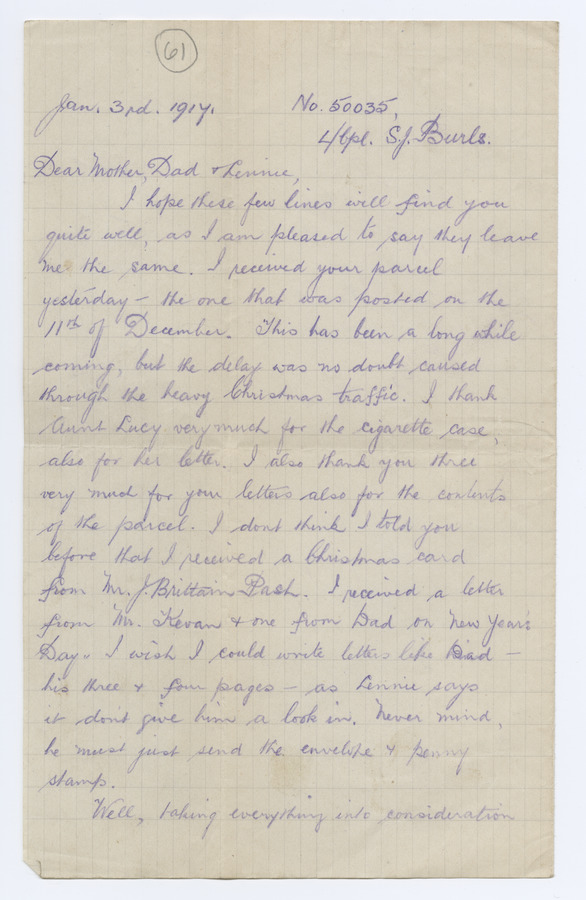 61
Jan. 3rd. 1917. No. 50035,
L/Cpl. S.J. Burls.
Dear Mother, Dad & Lennie,
I hope these few lines will find you
quite well, as I am pleased to say they leave
me the same. I received your parcel
yesterday – the one that was posted on the
11th of December. This has been a long while
coming, but the delay was no doubt caused
through the heavy Christmas traffic. I thank
Aunt Lucy very much for the cigarette case,
also for her letter. I also thank you three
very much for your letters also for the contents
of the parcel. I dont think I told you
before that I received a Christmas card
from Mr. J. Brittain Pash. I received a letter
from Mr. Kevan & one from Dad on New Year's
Day. I wish I could write letters like Dad –
his three & four pages – as Lennie says
it dont give him a look in. Never mind,
he must just send the envelope & penny
stamp.
Well, taking everything into consideration